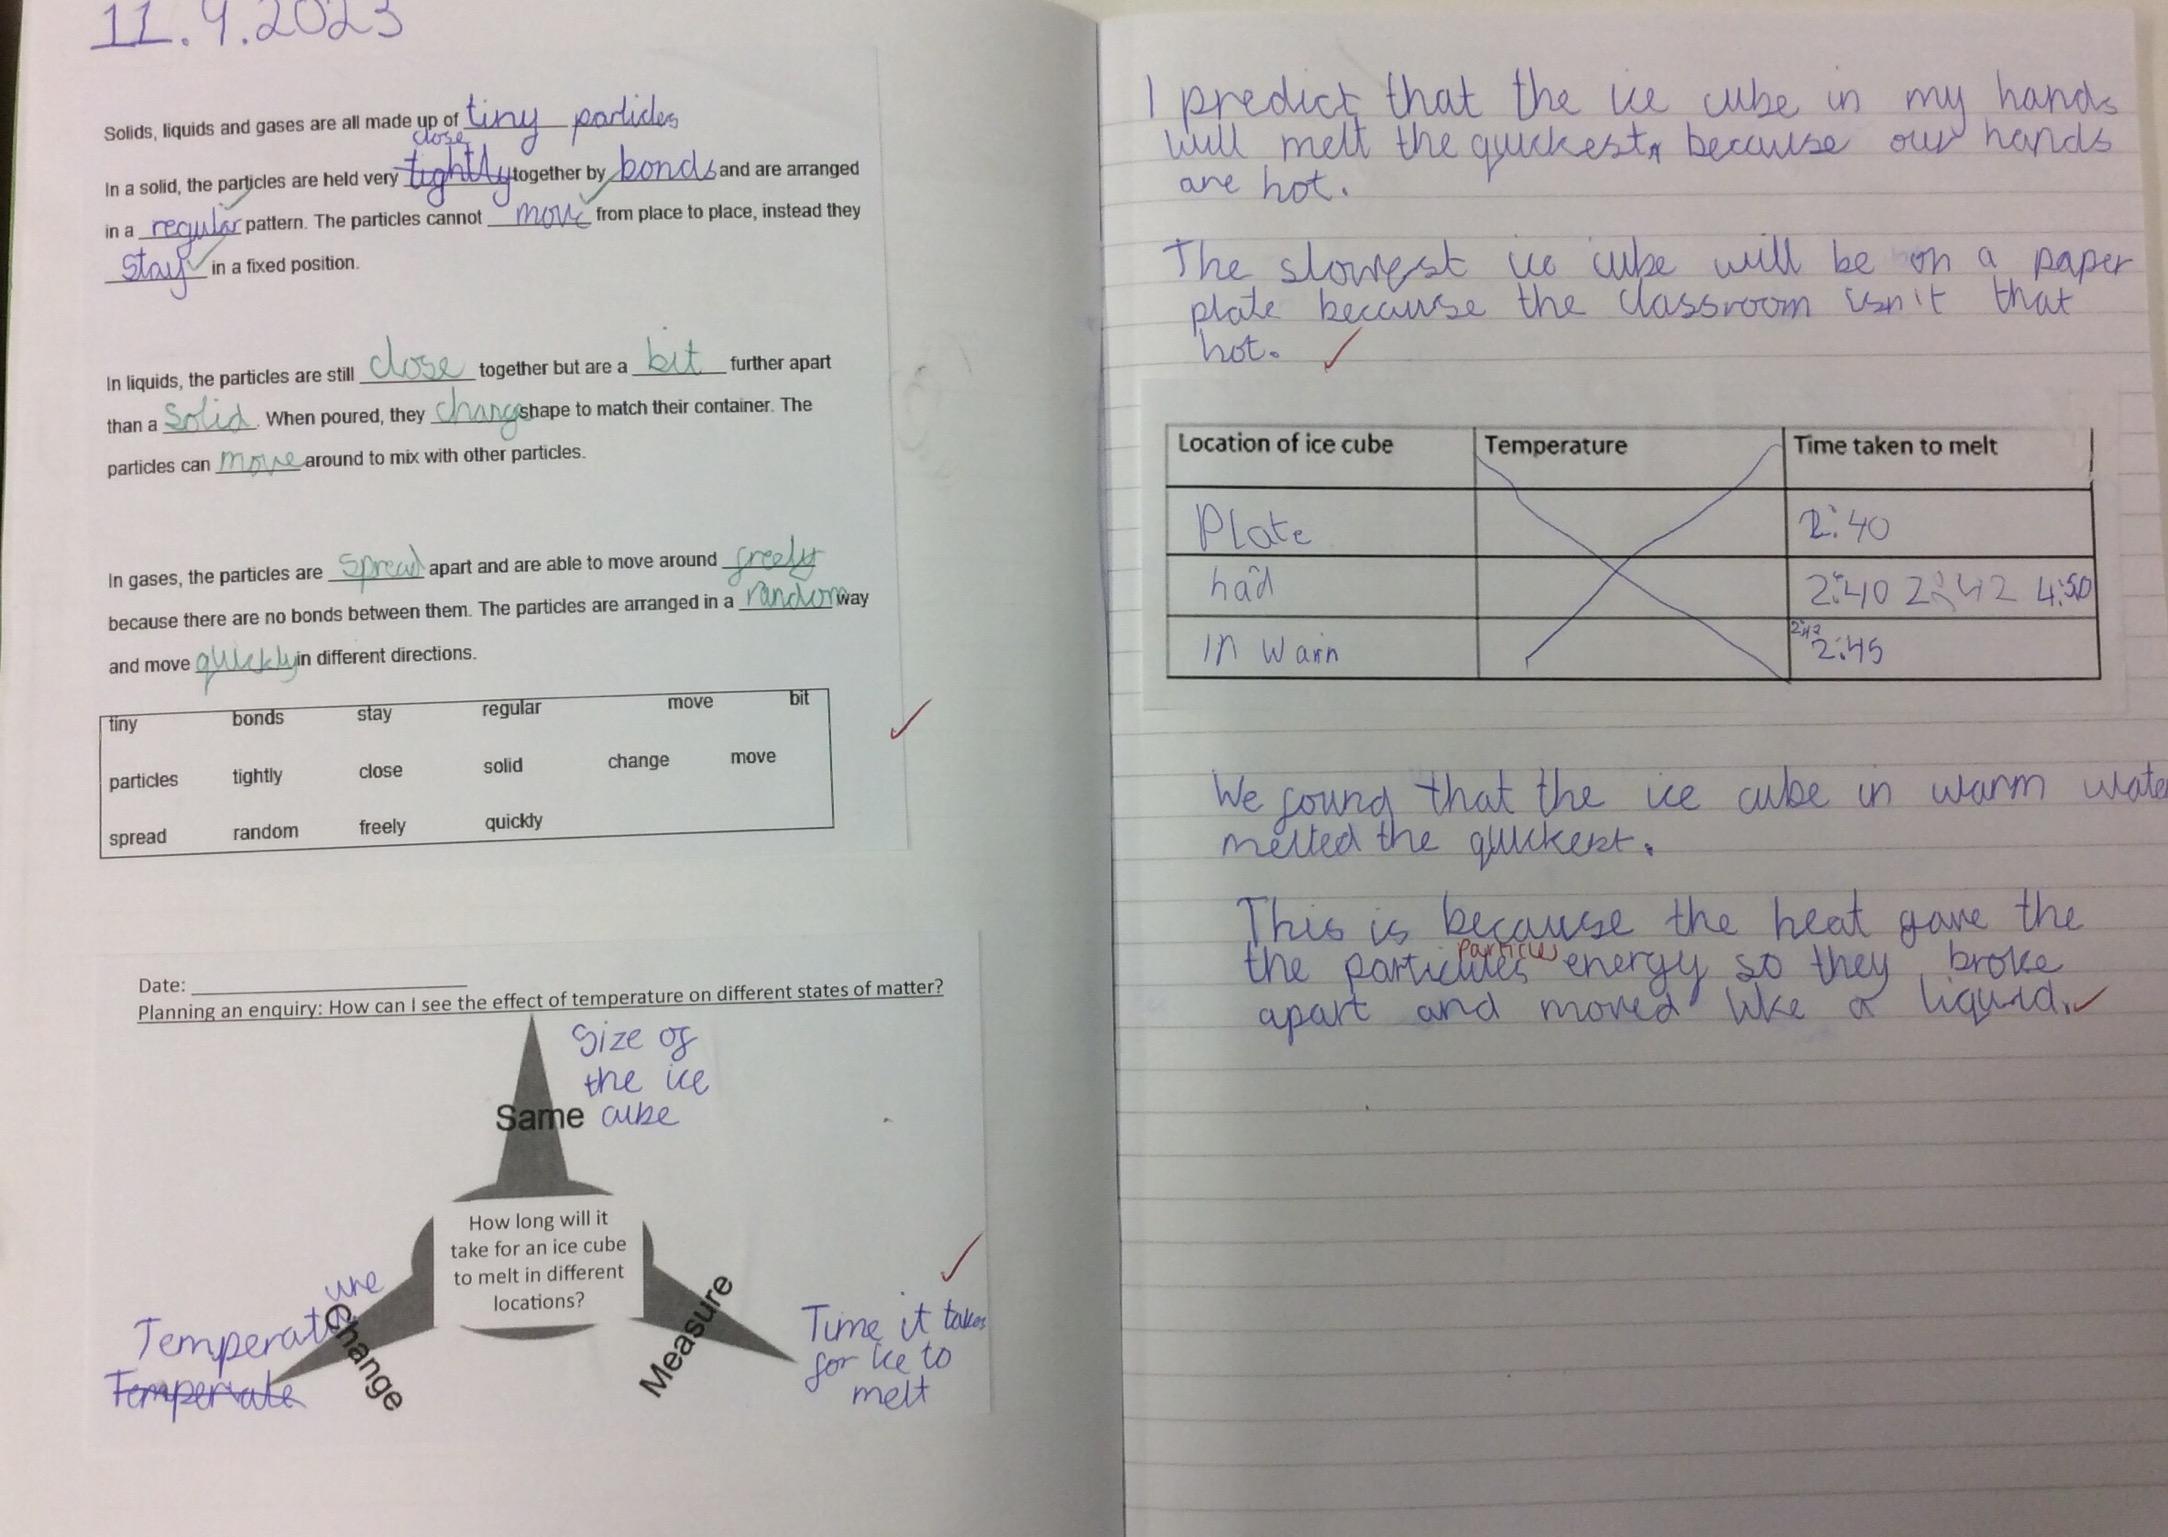 11.9.2023
Solids, liquids and gases are all made up of tiny particles
close
In a solid, the particles are held very tightly together by bonds and are arranged
in a regular pattern. The particles cannot move from place to place, instead they
stay in a fixed position.
In liquids, the particles are still close together but are a bit further apart
than a solid. When poured, they change shape to match their container. The
particles can move around to mix with other particles.
In gases, the particles are spread apart and are able to move around freely
because there are no bonds between them. The particles are arranged in a random way
and move quickly in different directions.
tiny bonds stay regular move bit
particles tightly close solid change move
spread random freely quickly
Date:
Planning an enquiry: How can I see the effect of temperature on different states of matter?
Size of
the ice
Same cube
How long will it
take for an ice cube
to melt in different
locations?
Temperature
Temperate
Change
Measure
Time it takes
for ice to
melt
I predict that the ice cube in my hands
will melt the quickest because our hands
are hot.
The slowest ice cube will be on a paper
plate because the classroom isn't that
hot.
Location of ice cube Temperature Time taken to melt
Plate 2:40
had 2:40 2:42 4:50
in warn 2:45
We found that the ice cube in warm wate
melted the quickest.
This is because the heat gave the
particles
the particules energy so they broke
apart and moved like a liquid.